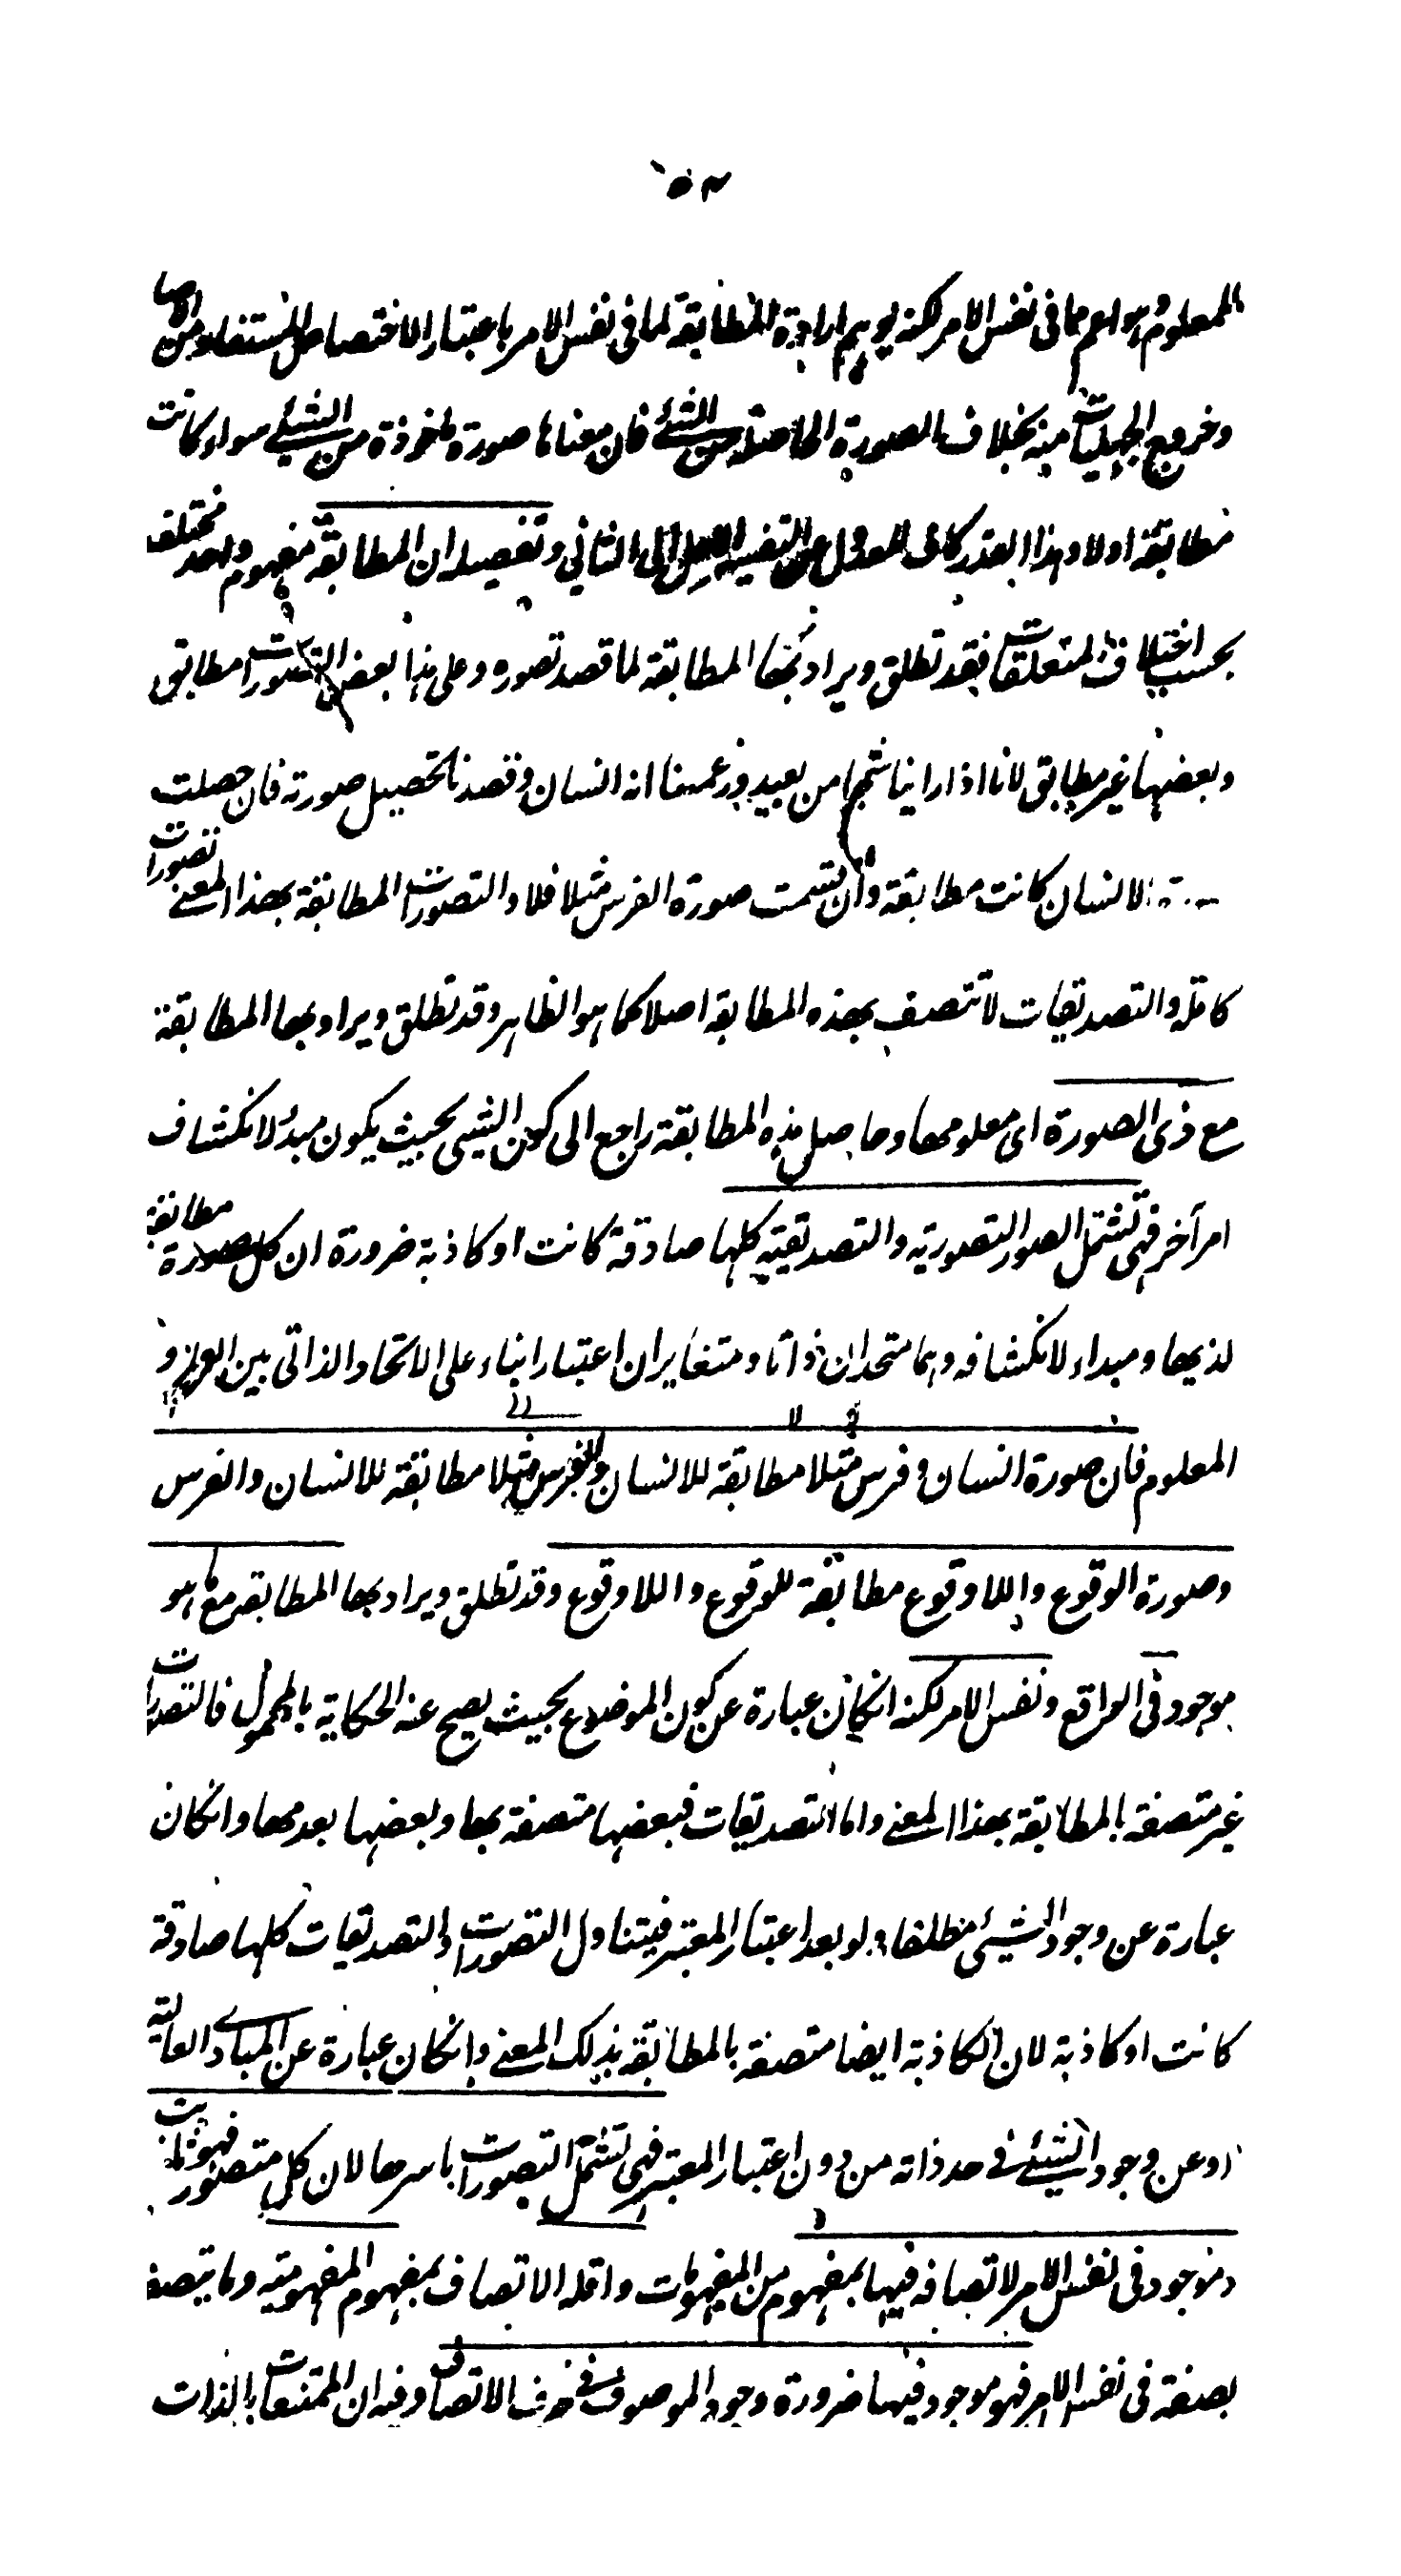 المعلوم هو اعم مما فى نفس الامر لكنه يوهم ارادة المطابقة لما فى نفس الامر باعتبار الاختصاص المستفاد من الاضا
وخروج الجهليات منه بخلاف الصورة الحاصلة من الشئ فان معناها صورة ماخوذة من الشئ سواء كانت
مطابقة اولا وهذا القدر كاف للعدول عن التفسير الاول الى الثاني وتفصيله ان المطابقة مفهوم واحد مختلف
بحسب اختلاف المتعلقات فقد تطلق ويراد بها المطابقة لما قصد تصوره وعلى هذا بعض التصورات مطابق
وبعضها غير مطابق لانا اذا راينا شبحا من بعيد وزعمنا انه انسان وقصدنا تحصيل صورته فان حصلت
الانسان كانت مطابقة وان ارتسمت صورة الفرس مثلا فلا والتصورات المطابقة بهذا المعنے تصورات
كاملة والتصديقات لا تتصف بهذه المطابقة اصلا كما هو الظاهر وقد تطلق ويراد بها المطابقة
مع ذى الصورة اى معلومها وحاصل هذه المطابقة راجع الى كون الشيى بحيث يكون مبدأ لانكشاف
امر آخر فهى تشتمل الصور التصورية والتصديقية كلها صادقة كانت او كاذبة ضرورة ان كل صورة مطابقة
لذيها ومبداء لانكشافه وهما متحدان ذوآتا ومتغايران اعتبارا بناء على الاتحاد الذاتى بين العلم و
المعلوم فان صورة انسان و فرس مثلا مطابقة للانسان والفرس مثلا مطابقة للانسان والفرس
وصورة الوقوع واللاوقوع مطابقة للوقوع واللاوقوع وقد تطلق ويراد بها المطابقة مع ما هو
موجود فى الواقع ونفس الامر لكنه انكان عبارة عن كون الموضوع بحيث يصح عنه الحكاية بالمحمول فالتصورات
غير متصفة بالمطابقة بهذا المعنے واما التصديقات فبعضها متصفة بها وبعضها بعدمها وانكان
عبارة عن وجود الشيئ مطلقا ولو بعد اعتبار المعتبر فيتناول التصورات والتصديقات كلها صادقة
كانت او كاذبة لان الكاذبة ايضا متصفة بالمطابقة بذلك المعنے وانكان عبارة عن المبادے العالية
او عن وجود الشئ فے حد ذاته من دون اعتبار المعتبر فهى تشتمل التصورات باسرها لان كل متصور فهو ثابت
وموجود فى نفس الامر لاتصافه فيها بمفهوم من المفهومات واقله الاتصاف بمفهوم المفهومية وما يتصف
بصفة فى نفس الامر فهو موجود فيها ضرورة وجود الموصوف فے ظرف الاتصاف وفيه ان الممتنعات بالذات